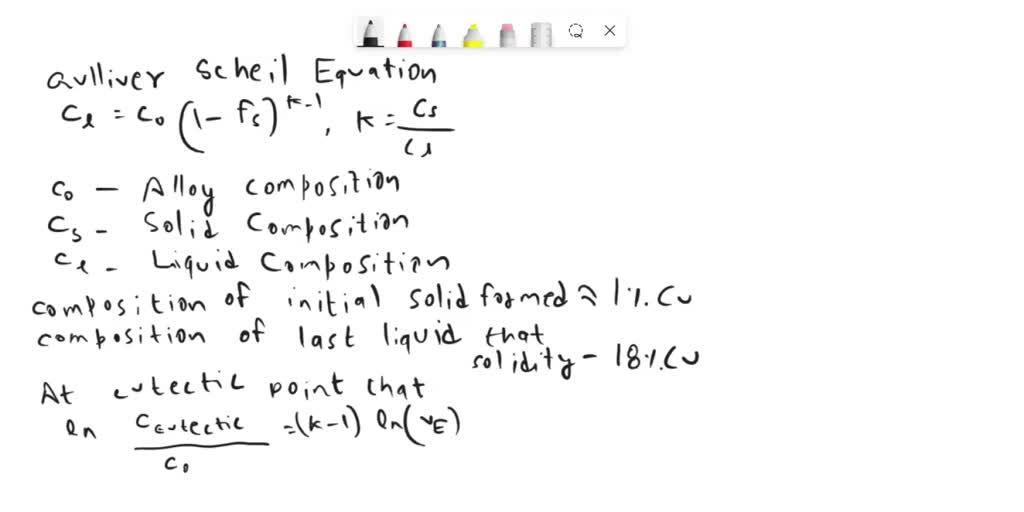 Gulliver Scheil Equation
Cℓ = C₀ (1 - fs)^k-1, k = Cs / Cℓ
C₀ - Alloy composition
Cs - Solid Composition
Cℓ - Liquid Composition
composition of initial solid formed ≈ 1%. Cu
composition of last liquid that
solidity - 18%. Cu
At eutectic point that
ln Ceutectic / C₀ = (k-1) ln(VE)